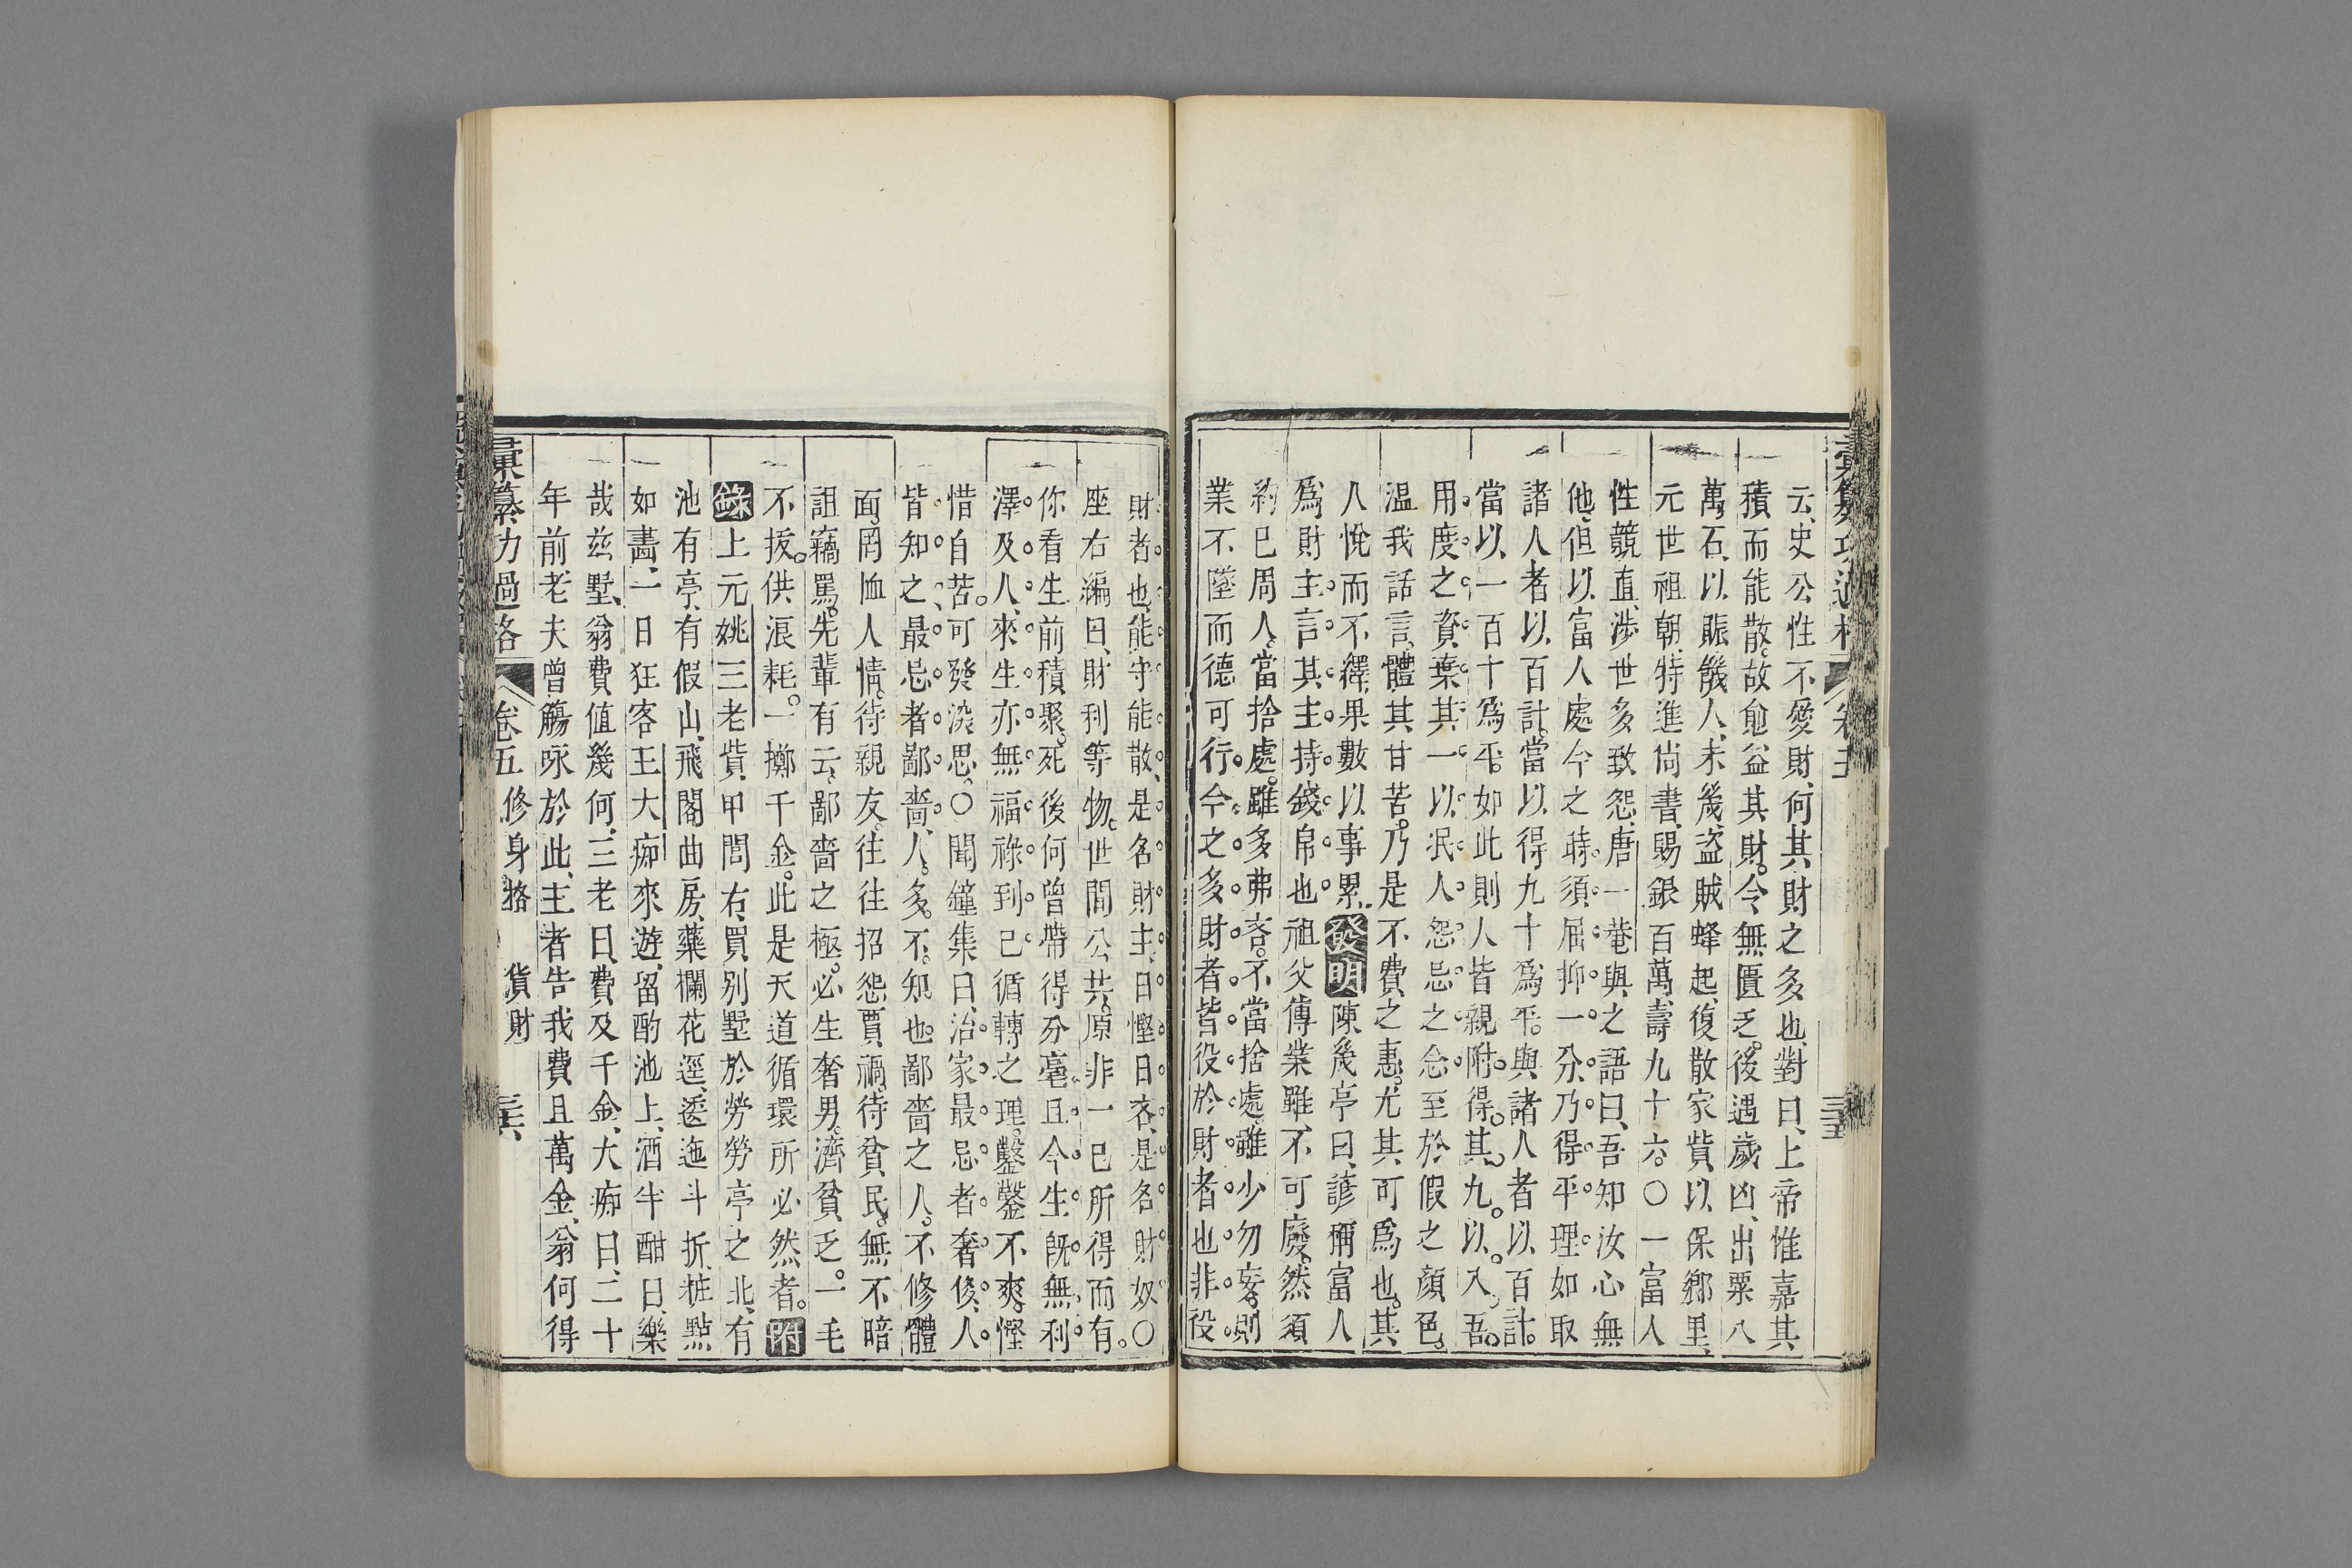 云、史公性不愛財、何其財之多也、對曰、上帝惟嘉其
積、而能散。故愈益其財。今無匱乏。後遇歲凶、出粟八
萬石、以賑饑人、未幾、盜賊蜂起、復散家貲、以保鄉里、
元世祖朝、特進尚書、賜銀百萬、壽九十六。〇一富人
性競直、涉世多致怨、唐一菴與之語曰、吾知汝心無
他、但以富人處今之時、須屈抑一分、乃得平理、如取
諸人者、以百計、當以得九十爲平。與諸人者、以百計。
當以一百十爲平。如此則人皆親附。得其九。以入吾。
用度之資。棄其一。以泯人怨忌之念、至於假之顏色。
温我話言、體其甘苦。乃是不費之惠。尤其可爲也。其
人悅而不繹、果數以事累、發明陳幾亭曰、諺稱富人
爲財主、言其主持錢帛也、祖父傳業、雖不可廢。然須
約已周人。當捨處。雖多弗吝。不當捨處。雖少勿妄。則
業不墜而德可行、今之多財者、皆役於財者也、非役
財者也、能守能散、是名財主、曰慳曰吝、是名財奴。〇
座右編曰、財利等物。世間公共。原非一己所得而有。
你看生前積聚。死後何曾帶得分毫、且今生旣無利
澤及人、來生亦無福祿到已、循轉之理。鑿鑿不爽。慳
惜自苦。可發深思。〇聞鐘集曰、治家最忌者奢侈、人
皆知之、最忌者鄙嗇、人多不知也。鄙嗇之人。不修體
面。罔恤人情。待親友。往往招怨賈禍、待貧民。無不暗
詛竊罵。先輩有云、鄙嗇之極。必生奢男。濟貧乏。一毛
不拔。供浪耗。一擲千金。此是天道循環所必然者。附
錄上元姚三老、貲甲閭右、買別墅於勞勞亭之北、有
池有亭、有假山、飛閣曲房、藥欄花逕、逶迤斗折、粧點
如畵、一日狂客王大痴來遊、留酌池上、酒半酣曰、樂
哉兹墅、翁費值幾何、三老曰、費及千金、大痴曰、二十
年前、老夫曾觴咏於此、主者告我費且萬金、翁何得
彙纂功過格 卷五 修身格 貨財 三六